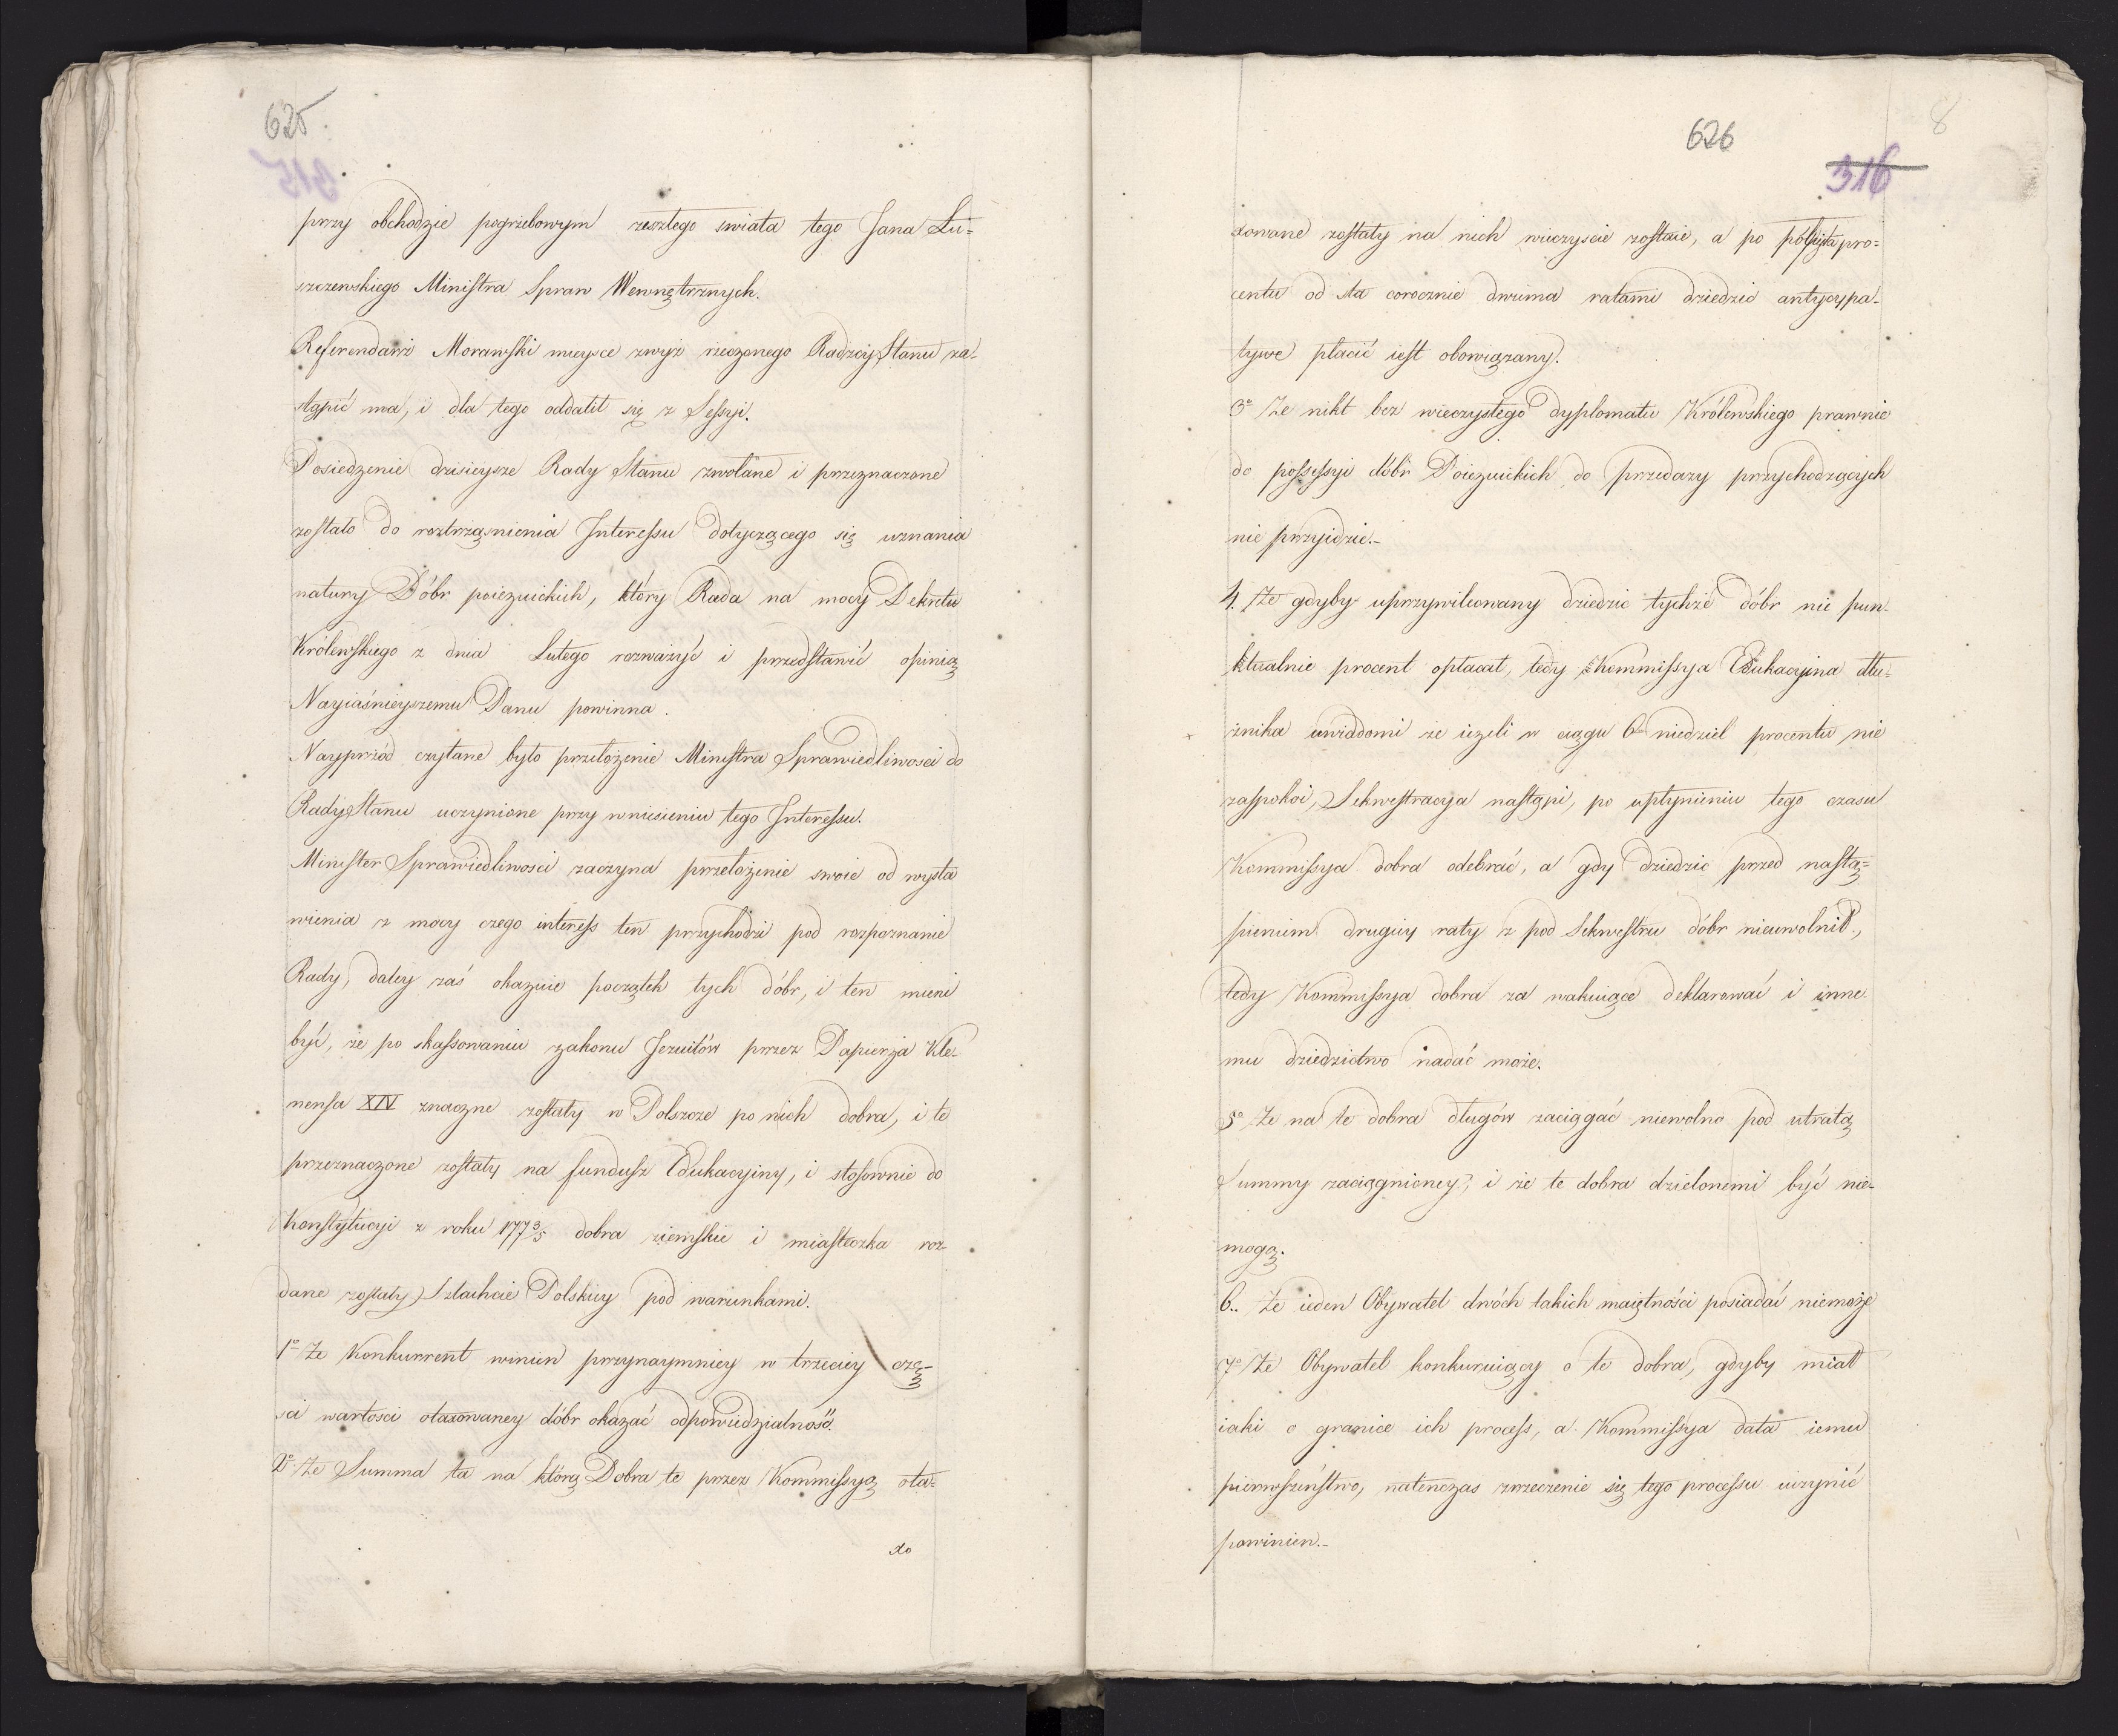 625.
315
przy obchodzie pogrzebowym zeszłego swiata tego Jana Łu=
szczewskiego Ministra Spraw Wewnętrznych.
Referendarz Morawski mieysce zwyż rzeczonego Radzcy Stanu za-
stąpić ma, i dla tego oddalił się z Sessyi.
Posiedzenie dzisieysze Rady Stanu zwołane i przeznaczone
zostało do roztrząśnienia Interessu dotyczącego się uznania
natury Dóbr poiezuickich, który Rada na mocy Dekretu
Królewskiego z dnia Lutego rozważyć i przedstawić opinią
Nayiaśnieyszemu Panu powinna.
Nayprzód czytane było przełożenie Ministra Sprawiedliwosci do
Rady Stanu uczynione przy wniesieniu tego Interessu.
Minister Sprawiedliwosci zaczyna przełożenie swoie od wysta
wienia z mocy czego interess ten przychodzi pod rozpoznanie
Rady, daley zaś okazuie początek tych dóbr, i ten mieni
być, że po skassowaniu zakonu Jezuitów przez Papieża Kle-
mensa XIV znaczne zostały w Polszcze po nich dobra, i te
przeznaczone zostały na fundusz Edukacyiny, i stosownie do
Konstytucyi z roku 1773/5 dobra ziemskie i miasteczka roz-
dane zostały Szlachcie Polskiey pod warunkami.
1o Że Konkurrent winien przynaymniey w trzeciey czę-
sci wartosci otaxowaney dóbr okazać odpowiedzialność.
2o Że Summa ta na którą Dobra te przez Kommissyą ota-
xo
626
8
316
xowane zostały na nich wieczyscie zostaie, a po półpięta pro=
centu od sta corocznie dwiema ratami dziedzic antycypa-
tywe płacić iest obowiązany.
3o Że nikt bez wieczystego dyplomatu Królewskiego prawnie
do possessyi dóbr Poiezuickich do przedaży przychodzących
nie przyidzie.-
4. Że gdyby uprzywileowany dziedzic tychże dóbr nie pun-
ktualnie procent opłacał, tedy Kommissya Edukacyina dłu-
żnika uwiadomi że ieżeli w ciągu 6 niedziel procentu nie
zaspokoi, Sekwestracya nastąpi, po upłynieniu tego czasu
Kommissya dobra odebrać, a gdy dziedzic przed nastą=
pieniem drugiey raty z pod Sekwestru dóbr nieuwolnił.,
tedy Kommissya dobra za wakuiące deklarować i inne-
mu dziedzictwo nadać może.
5o Że na te dobra długów zaciągać niewolno pod utratą
Summy zaciągnioney, i że te dobra dzielonemi być nie-
mogą.
6.. Że ieden Obywatel dwóch takich maiętności posiadać niemoże
7o Że Obywatel konkuruiący o te dobra, gdyby miał
iaki o granice ich process, a Kommissya dała iemu
pierwszeństwo, natenczas zrzeczenie się tego processu uczynić
powinien.-